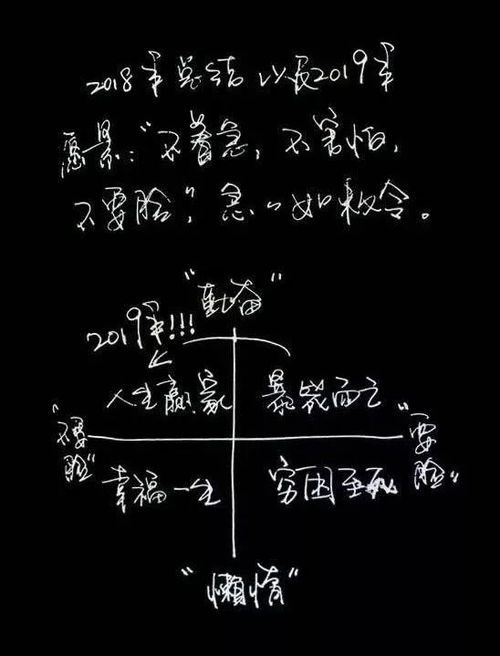 2018年总结以及2019年
愿景："不着急，不害怕，
不要脸"，急急如敕令。
"勤奋"
2019年!!!
人生赢家
暴毙而亡
"不要脸"
"要脸"
幸福一生
穷困至死
"懒惰"